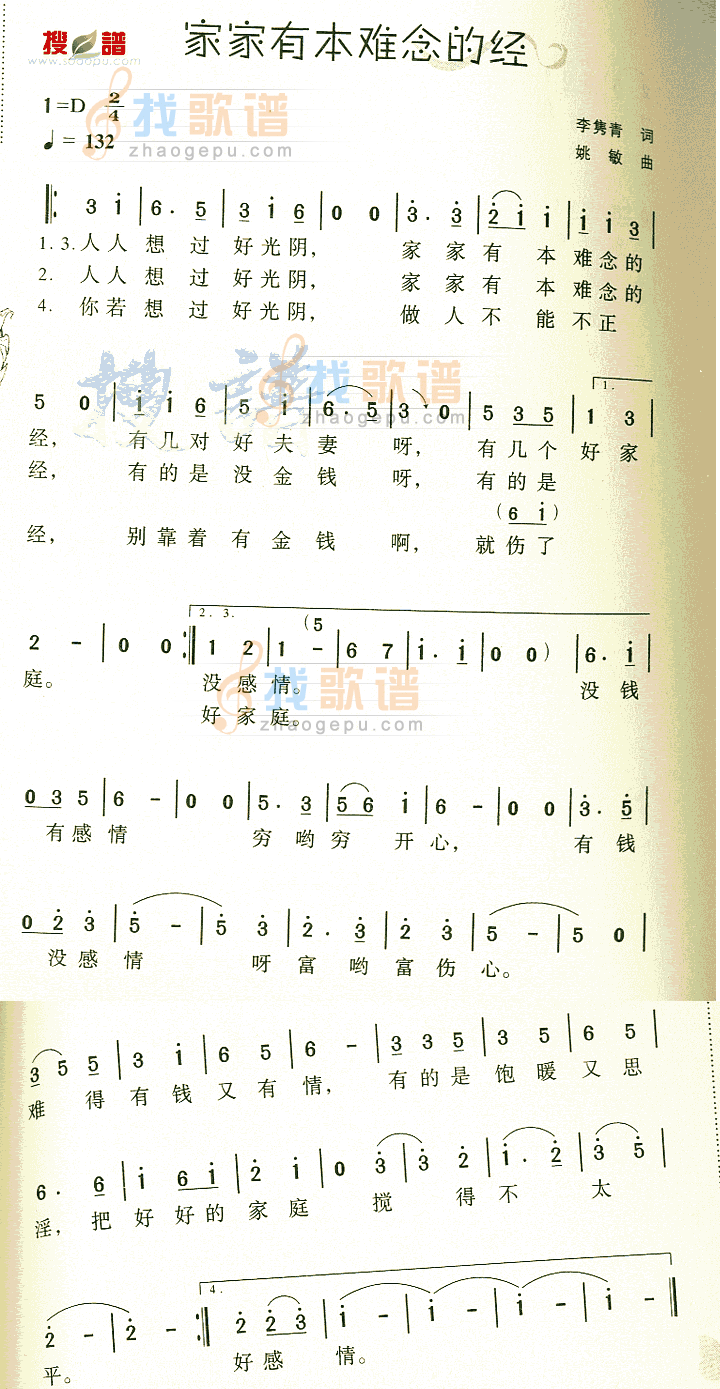 搜 谱
www.sooopu.com
家家有本难念的经
1=D 2/4
♩= 132
找歌谱
zhaogepu.com
李隽青 词
姚 敏 曲
3 i | 6. 5 | 3 i 6 | 0 0 | 3. 3 | 2 i i | i i 3 |
1. 3. 人人 想 过 好光阴， 家 家有 本 难念的
2. 人人 想 过 好光阴， 家 家有 本 难念的
4. 你若 想 过 好光阴， 做 人不 能 不正
搜 谱
找歌谱
zhaogepu.com
1.
5 0 | i i 6 | 5 i | 6. 5 | 3 0 | 5 3 5 | 1 3 |
经， 有几对 好 夫 妻 呀， 有几个 好 家
经， 有的是 没 金 钱 呀， 有的是
(6 i)
经， 别靠着 有 金 钱 啊， 就伤了
2. 3.
(5
2 - | 0 0 :| 1 2 | 1 - | 6 7 | i. i | 0 0) | 6. i |
庭。 没感情。 没钱
好家庭。
找歌谱
zhaogepu.com
0 3 5 | 6 - | 0 0 | 5. 3 | 5 6 i | 6 - | 0 0 | 3. 5 |
有感情 穷哟穷 开心， 有钱
0 2 3 | 5 - | 5 3 | 2. 3 | 2 3 | 5 - | 5 0 |
没感情 呀富哟富伤心。
3 5 5 | 3 i | 6 5 | 6 - | 3 3 5 | 3 5 | 6 5 |
难 得有钱又有情， 有的是饱暖又思
6. 6 | i 6 i | 2 i | 0 3 | 3 2 | i. 2 | 3 5 |
淫，把好好的家庭 搅 得不 太
4.
2 - | 2 - :| 2 2 3 | i - | i - | i - | i - |
平。 好感 情。